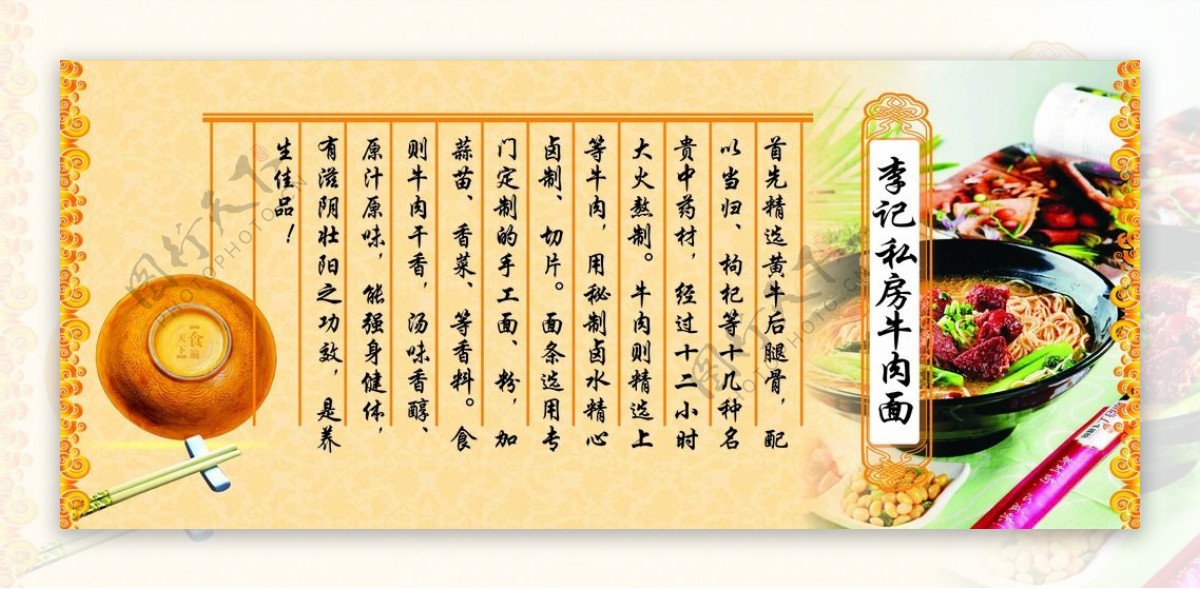 李记私房牛肉面
首先精选黄牛后腿骨，配
以当归、枸杞等十几种名
贵中药材，经过十二小时
大火熬制。牛肉则精选上
等牛肉，用秘制卤水精心
卤制、切片。面条选用专
门定制的手工面、粉，加
蒜苗、香菜、等香料。食
则牛肉干香，汤味香醇、
原汁原味，能强身健体，
有滋阴壮阳之功效，是养
生佳品！
食
天上
图行天下
PHOTOPHOTO.CN